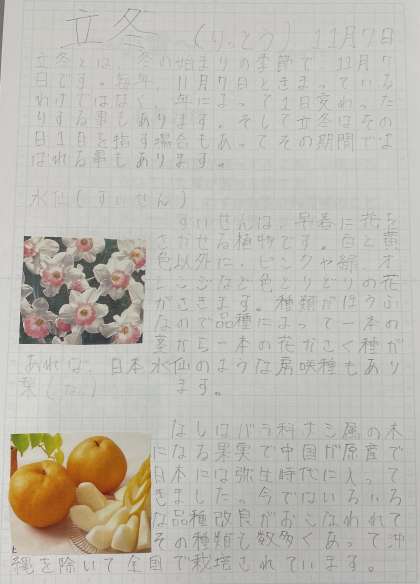 立冬 (りっとう) 11月7日
立冬とは、冬の始まりの季節で、11月7
日です。毎年、11月7日ときまっている
わけではなく、年によって1日変わった
りする事もあります。そして立冬はその
日1日を指す場合もあってその期間でよ
ばれる事もあります。
水仙(すいせん)
すいせんは、早春に花を
さかせる植物です。白と黄
色以外に、ピンクや緑、オ
レンジなど色とりどりの花
がさきます。種類がほうふ
なので品種によって一本の
茎から一本の花がさく種が
あれば、日本水仙のような房咲種もあり
ます。
梨(なし)
なしはバラ科ナシ属の木
になる果実で中国が原産で
日本には弥生時代に入って
きました。今ではいろいろ
な品種改良がおこなわれて
その種類も数多くあって沖
縄を除いて全国で栽培されています。